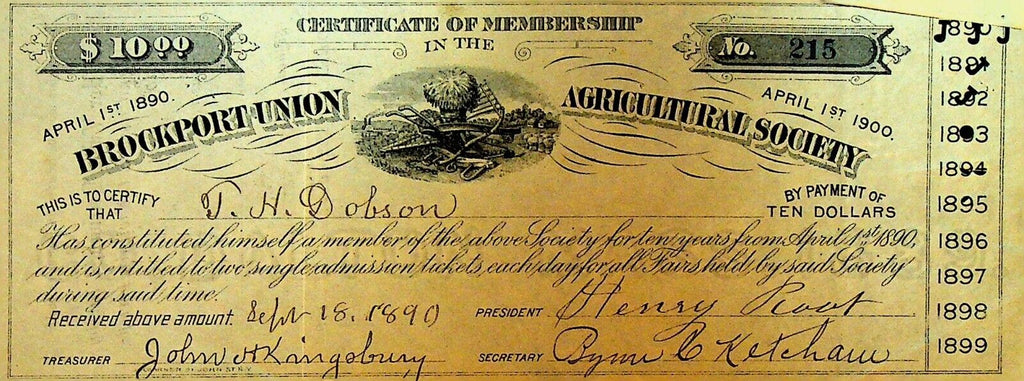 CERTIFICATE OF MEMBERSHIP
IN THE
$10.00
No. 215
APRIL 1ST 1890.
APRIL 1ST 1900.
BROCKPORT UNION AGRICULTURAL SOCIETY
THIS IS TO CERTIFY THAT T. H. Dobson BY PAYMENT OF TEN DOLLARS
Has constituted himself a member of the above Society for ten years from April 1st 1890,
and is entitled to two single admission tickets each day for all Fairs held by said Society
during said time.
Received above amount. Sept 18, 1890 PRESIDENT Henry Root
TREASURER John H Kingsbury SECRETARY C Ketcham
1890
1891
1892
1893
1894
1895
1896
1897
1898
1899